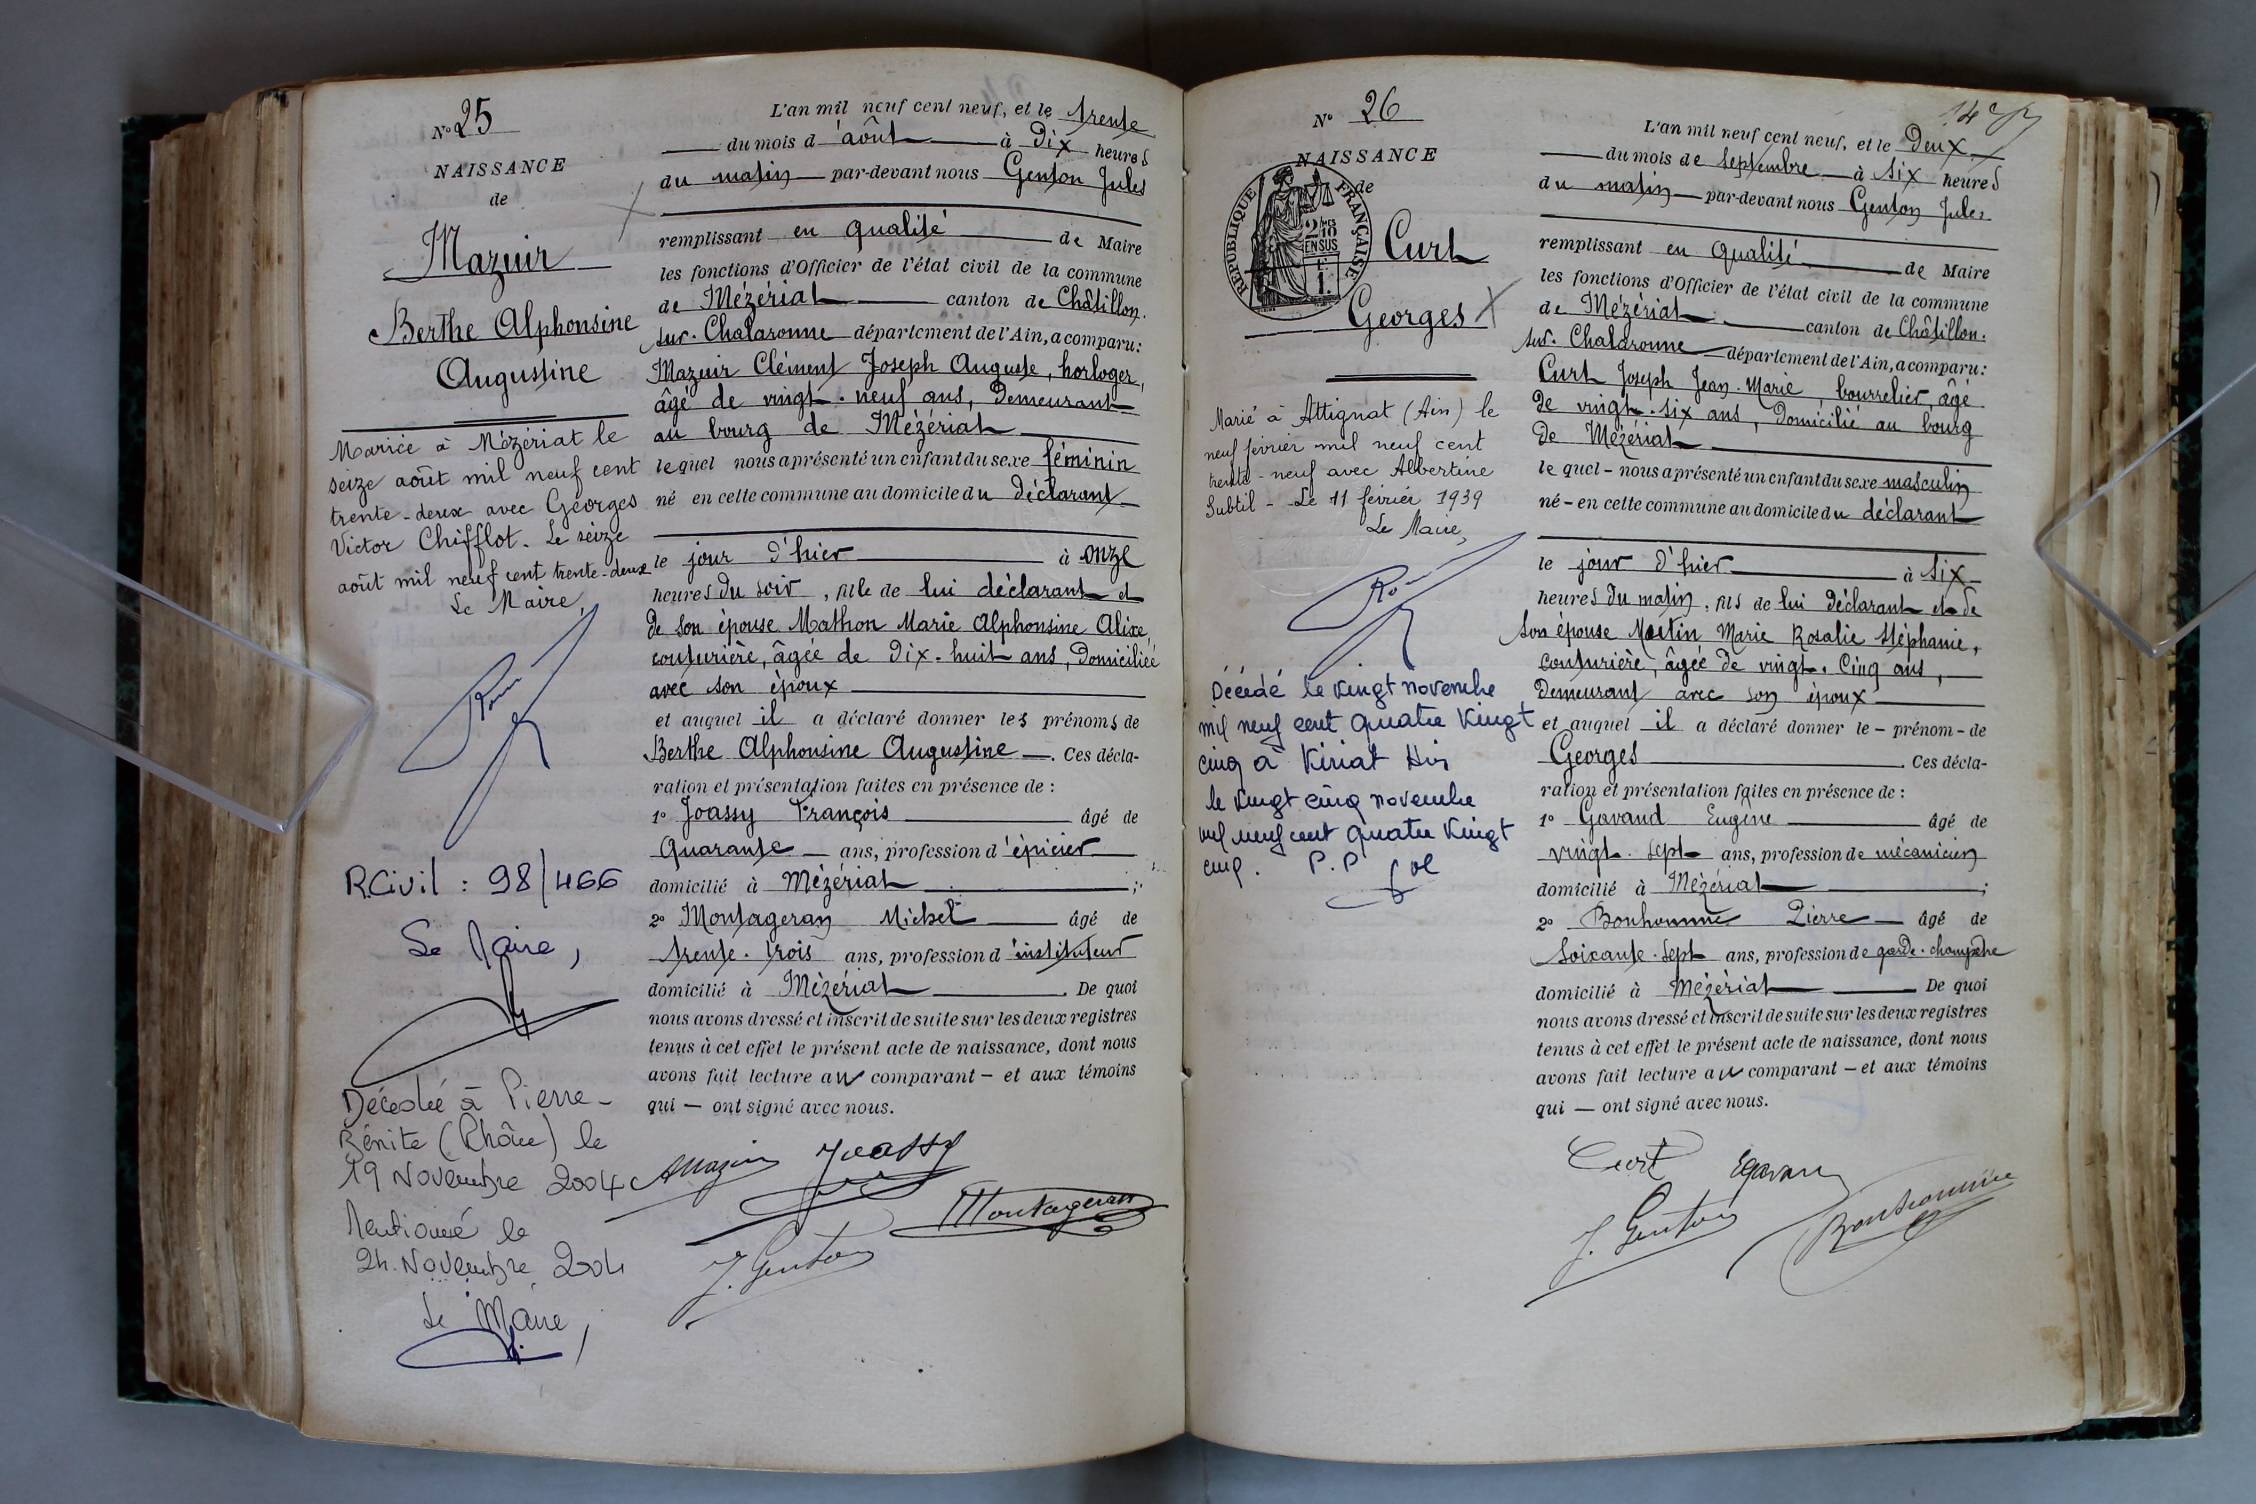 N° 25
NAISSANCE
de
Mazuir
Berthe Alphonsine
Augustine
Mariée à Mézériat le
seize août mil neuf cent
trente-deux avec Georges
Victor Chifflot. Le seize
août mil neuf cent trente-deux
Le Maire,
R.Civil : 98/466
Le Maire,
Décédée à Pierre-
Bénite (Rhône) le
19 Novembre 2004
Mentionné le
24 Novembre 2004
Le Maire,
L'an mil neuf cent neuf, et le trente
du mois d'août à dix heures
du matin par-devant nous Genton Jules
remplissant en qualité de Maire
les fonctions d'Officier de l'état civil de la commune
de Mézériat canton de Châtillon-
sur-Chalaronne département de l'Ain, a comparu:
Mazuir Clément Joseph Auguste, horloger,
âgé de vingt-neuf ans, demeurant
au bourg de Mézériat
lequel nous a présenté un enfant du sexe féminin
né en cette commune au domicile du déclarant
le jour d'hier à onze
heures du soir, fille de lui déclarant et
de son épouse Mathon Marie Alphonsine Alixe,
couturière, âgée de dix-huit ans, domiciliée
avec son époux
et auquel il a déclaré donner les prénoms de
Berthe Alphonsine Augustine. Ces décla-
ration et présentation faites en présence de :
1° Joassy François âgé de
quarante ans, profession d'épicier
domicilié à Mézériat ;
2° Montageran Michel âgé de
trente-trois ans, profession d'instituteur
domicilié à Mézériat. De quoi
nous avons dressé et inscrit de suite sur les deux registres
tenus à cet effet le présent acte de naissance, dont nous
avons fait lecture au comparant – et aux témoins
qui — ont signé avec nous.
AMazuir Joassy
Montageran
J. Genton
N° 26
NAISSANCE
de
RÉPUBLIQUE FRANÇAISE
2/10
EN SUS
1
Curt
Georges
Marié à Attignat (Ain) le
neuf février mil neuf cent
trente-neuf avec Albertine
Subtil - Le 11 février 1939
Le Maire,
Décédé le vingt novembre
mil neuf cent quatre vingt
cinq à Viriat
le vingt cinq novembre
mil neuf cent quatre vingt
cinq. P.P
L'an mil neuf cent neuf, et le deux
du mois de septembre à six heures
du matin par-devant nous Genton Jules
remplissant en qualité de Maire
les fonctions d'Officier de l'état civil de la commune
de Mézériat canton de Châtillon-
sur-Chalaronne département de l'Ain, a comparu:
Curt Joseph Jean-Marie, bourrelier, âgé
de vingt-six ans, domicilié au bourg
de Mézériat
lequel - nous a présenté un enfant du sexe masculin
né - en cette commune au domicile du déclarant
le jour d'hier à six
heures du matin, fils de lui déclarant et de
son épouse Marie Rosalie Stéphanie,
couturière, âgée de vingt-cinq ans,
demeurant avec son époux
et auquel il a déclaré donner le - prénom - de
Georges. Ces décla-
ration et présentation faites en présence de :
1° Gavand Eugène âgé de
vingt-sept ans, profession de mécanicien
domicilié à Mézériat ;
2° Bonhomme Pierre âgé de
soixante-sept ans, profession de garde-champêtre
domicilié à Mézériat. De quoi
nous avons dressé et inscrit de suite sur les deux registres
tenus à cet effet le présent acte de naissance, dont nous
avons fait lecture au comparant – et aux témoins
qui — ont signé avec nous.
Curt EGavand
J. Genton Bonhomme